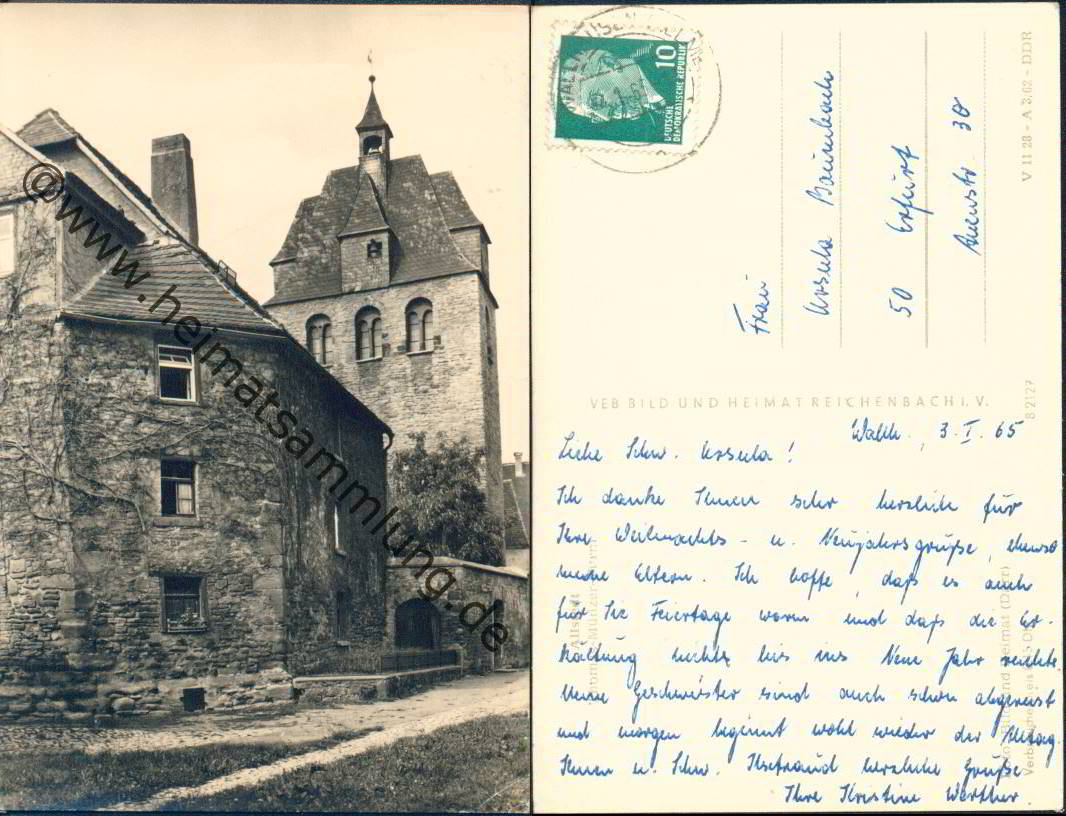 @www.heimatsammlung.de
10
DEUTSCHE
DEMOKRATISCHE REPUBLIK
V 11 28 - A 3/62 - DDR
Frau
Ursula Baumbach
50 Erfurt
Auenstr. 30
VEB BILD UND HEIMAT REICHENBACH I. V.
B 2127
Allstedt
Walth., 3. I. 65
Liebe Schw. Ursula!
Ich danke Ihnen sehr herzlich für
Ihre Weihnachts- u. Neujahrsgrüße, ebenso
meine Eltern. Ich hoffe, daß es auch
für Sie Feiertage waren und daß die Er-
kältung nicht bis ins Neue Jahr reichte.
Meine Geschwister sind auch schon abgereist
und morgen beginnt wohl wieder der Alltag.
Ihnen u. Schw. Ilsetraud herzliche Grüße
Ihre Kristine Werther